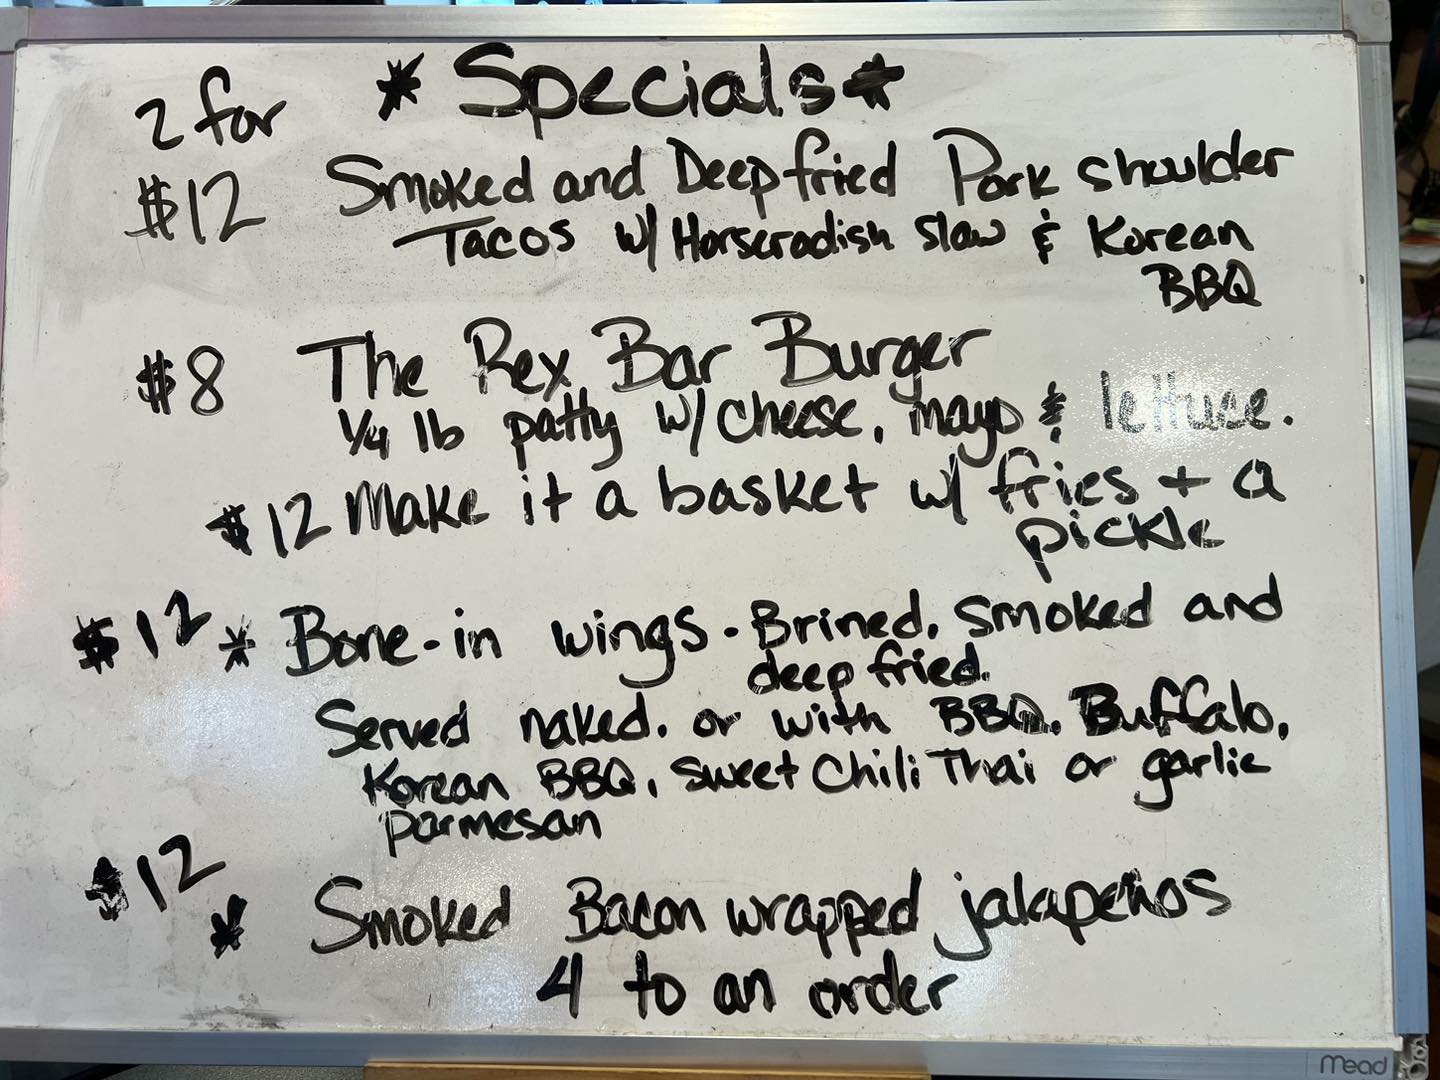 * Specials *
2 for
$12 Smoked and Deep fried Pork shoulder
Tacos w/ Horseradish slaw & Korean
BBQ
$8 The Rex Bar Burger
1/4 lb patty w/ cheese, mayo & lettuce.
$12 Make it a basket w/ fries + a
pickle
$12 * Bone-in wings - Brined, smoked and
deep fried.
Served naked, or with BBQ, Buffalo,
Korean BBQ, sweet Chili Thai or garlic
parmesan
$12
* Smoked Bacon wrapped jalapeños
4 to an order
Mead